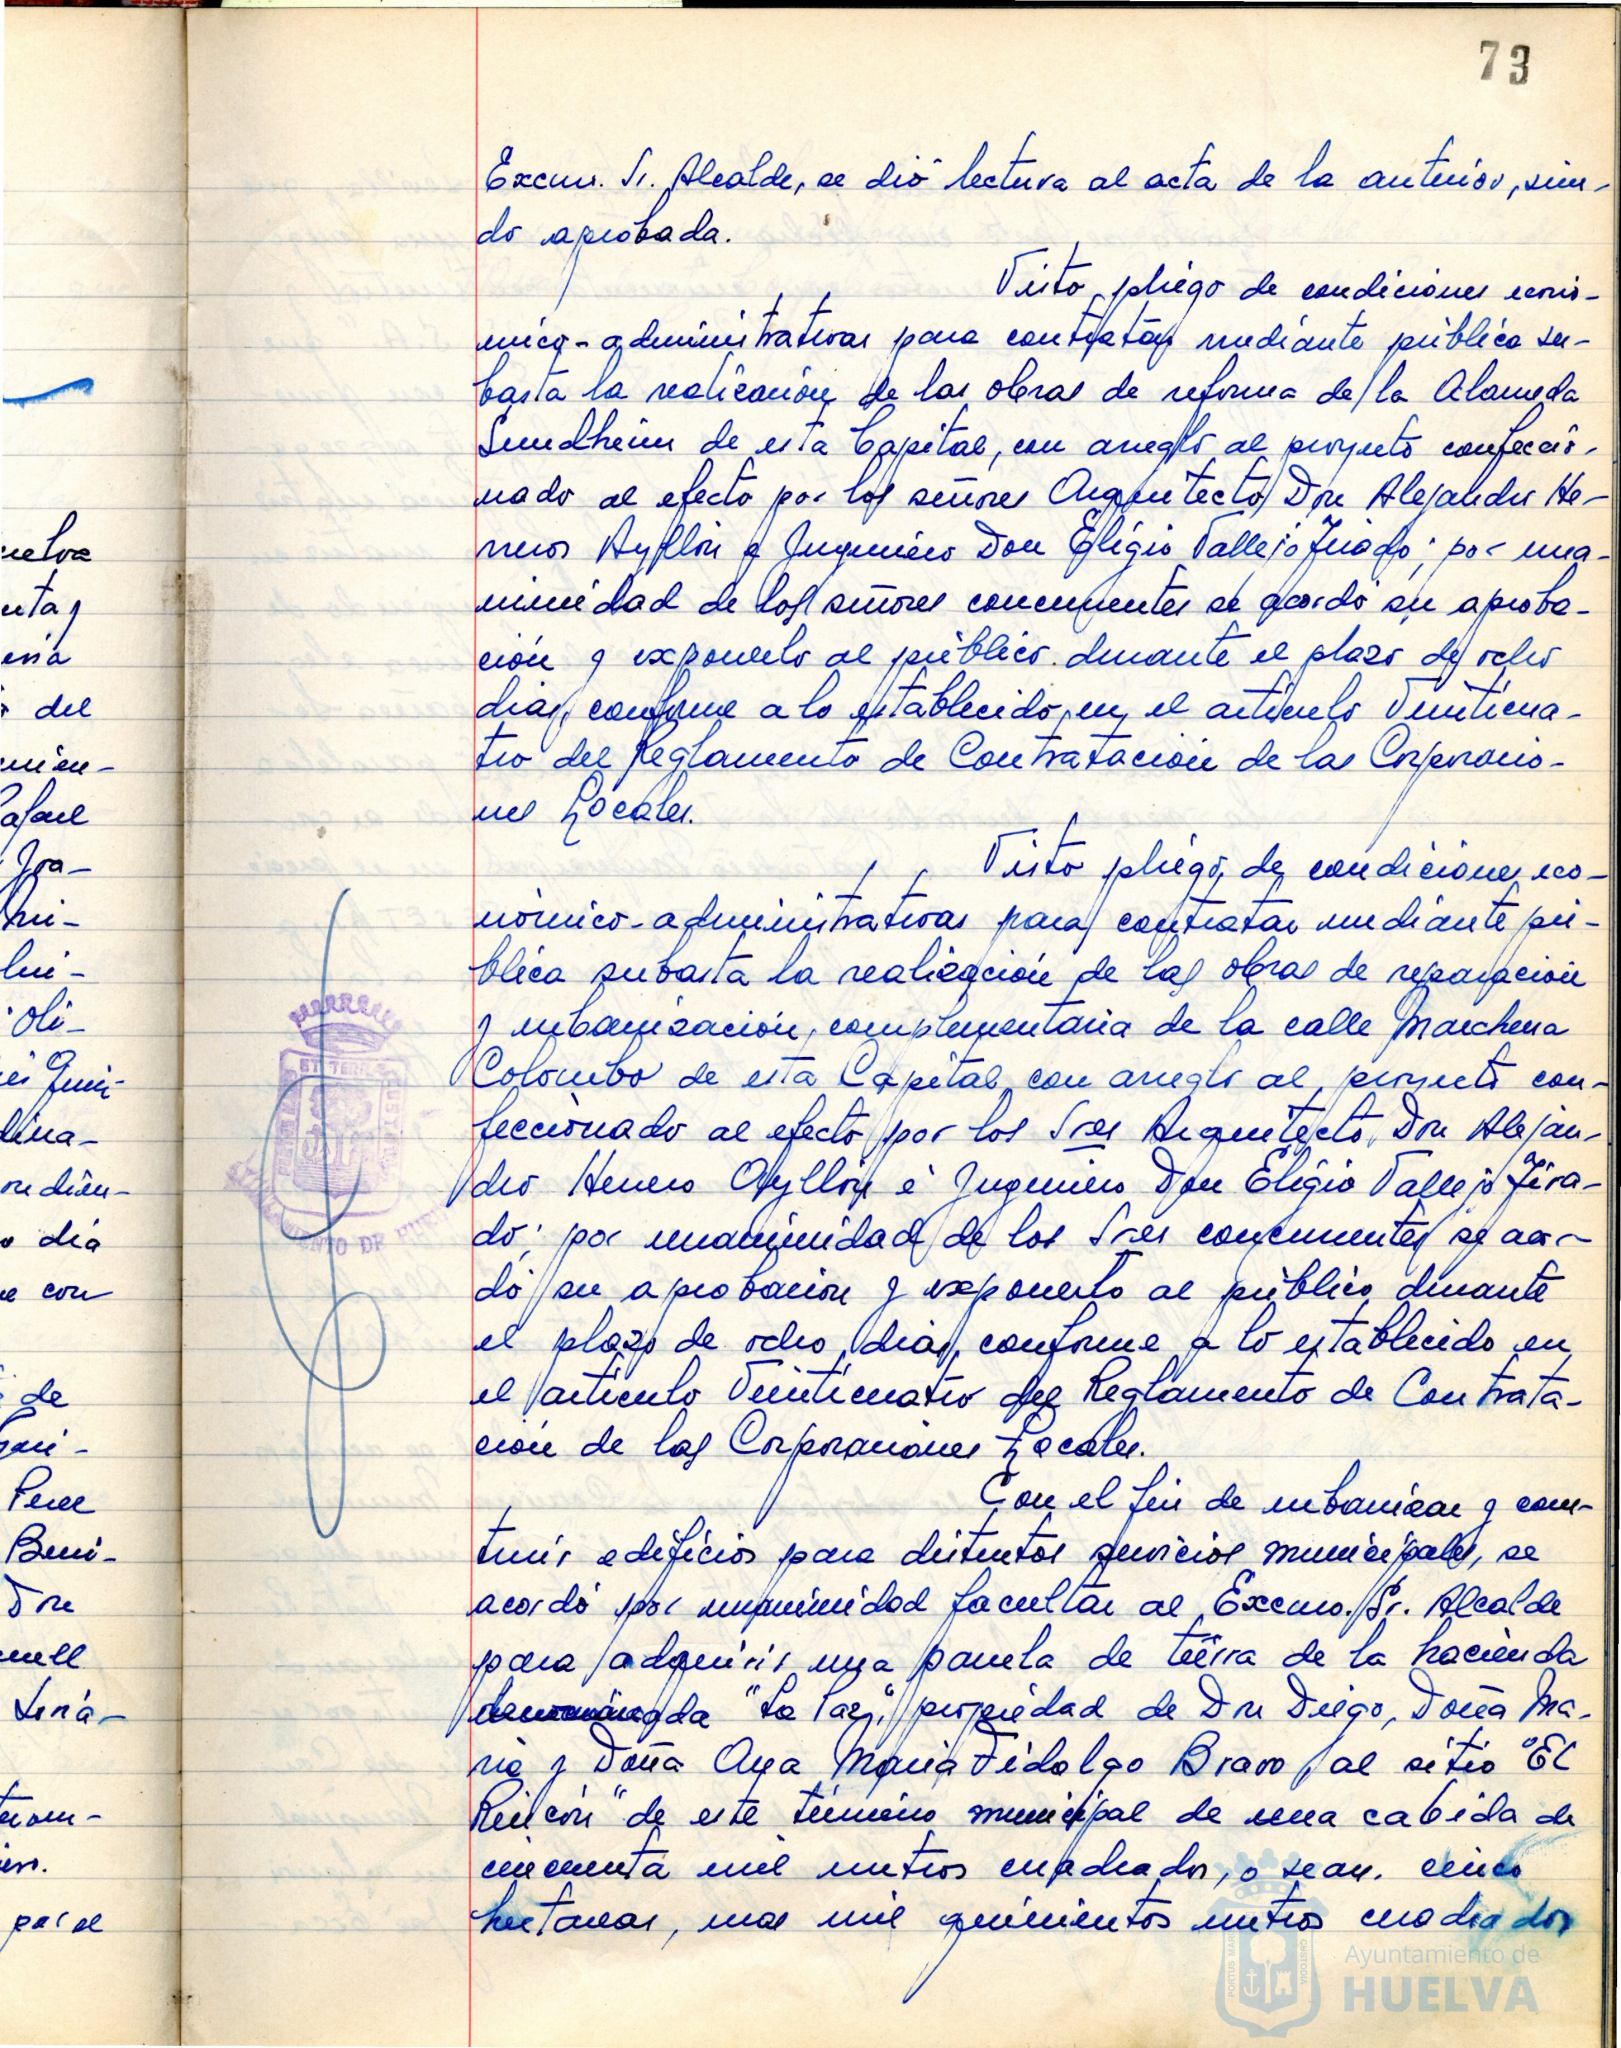 73
Excmo. Sr. Alcalde, se dió lectura al acta de la anterior, sien-
do aprobada.
Visto pliego de condiciones econó-
mico-administrativas para contratar mediante pública su-
basta la realización de las obras de reforma de la Alameda
Sundheim de esta Capital, con arreglo al proyecto confeccio-
nado al efecto por los señores Arquitecto Don Alejandro He-
rrero Ayllón e Ingeniero Don Eligio Vallejo Tirado; por una-
nimidad de los señores concurrentes se acordó su aproba-
ción y exponerlo al público durante el plazo de ocho
dias, conforme a lo establecido en el artículo Veinticua-
tro del Reglamento de Contratación de las Corporacio-
nes Locales.
Visto pliego de condiciones eco-
nómico-administrativas para contratar mediante pú-
blica subasta la realización de las obras de reparación
y urbanización complementaria de la calle Marchena
Colombo de esta Capital con arreglo al proyecto con-
feccionado al efecto por los Sres Arquitecto Don Alejan-
dro Herrero Ayllón é Ingeniero Don Eligio Vallejo Tira-
do; por unanimidad de los Sres concurrentes se acor-
dó su aprobación y exponerlo al público durante
el plazo de ocho dias, conforme a lo establecido en
el artículo Veinticuatro del Reglamento de Contrata-
ción de las Corporaciones Locales.
Con el fin de urbanizar y cons-
truir edificios para distintos servicios municipales, se
acordó por unanimidad facultar al Excmo. Sr. Alcalde
para adquirir una parcela de tierra de la hacienda
denominada "La Paz", propiedad de Don Diego, Doña Ma-
ría y Doña Ana María Fidalgo Bravo, al sitio "El
Rincón" de este término municipal de una cabida de
cincuenta mil metros cuadrados, o sean. cinco
hectareas, mas mil quinientos metros cuadrados
uelva
enta y
del
Rafael
Oli-
dina-
o dia
e con
de
Perez
Beni-
Don
por el
AYUNTAMIENTO DE HUELVA
Ayuntamiento de
HUELVA